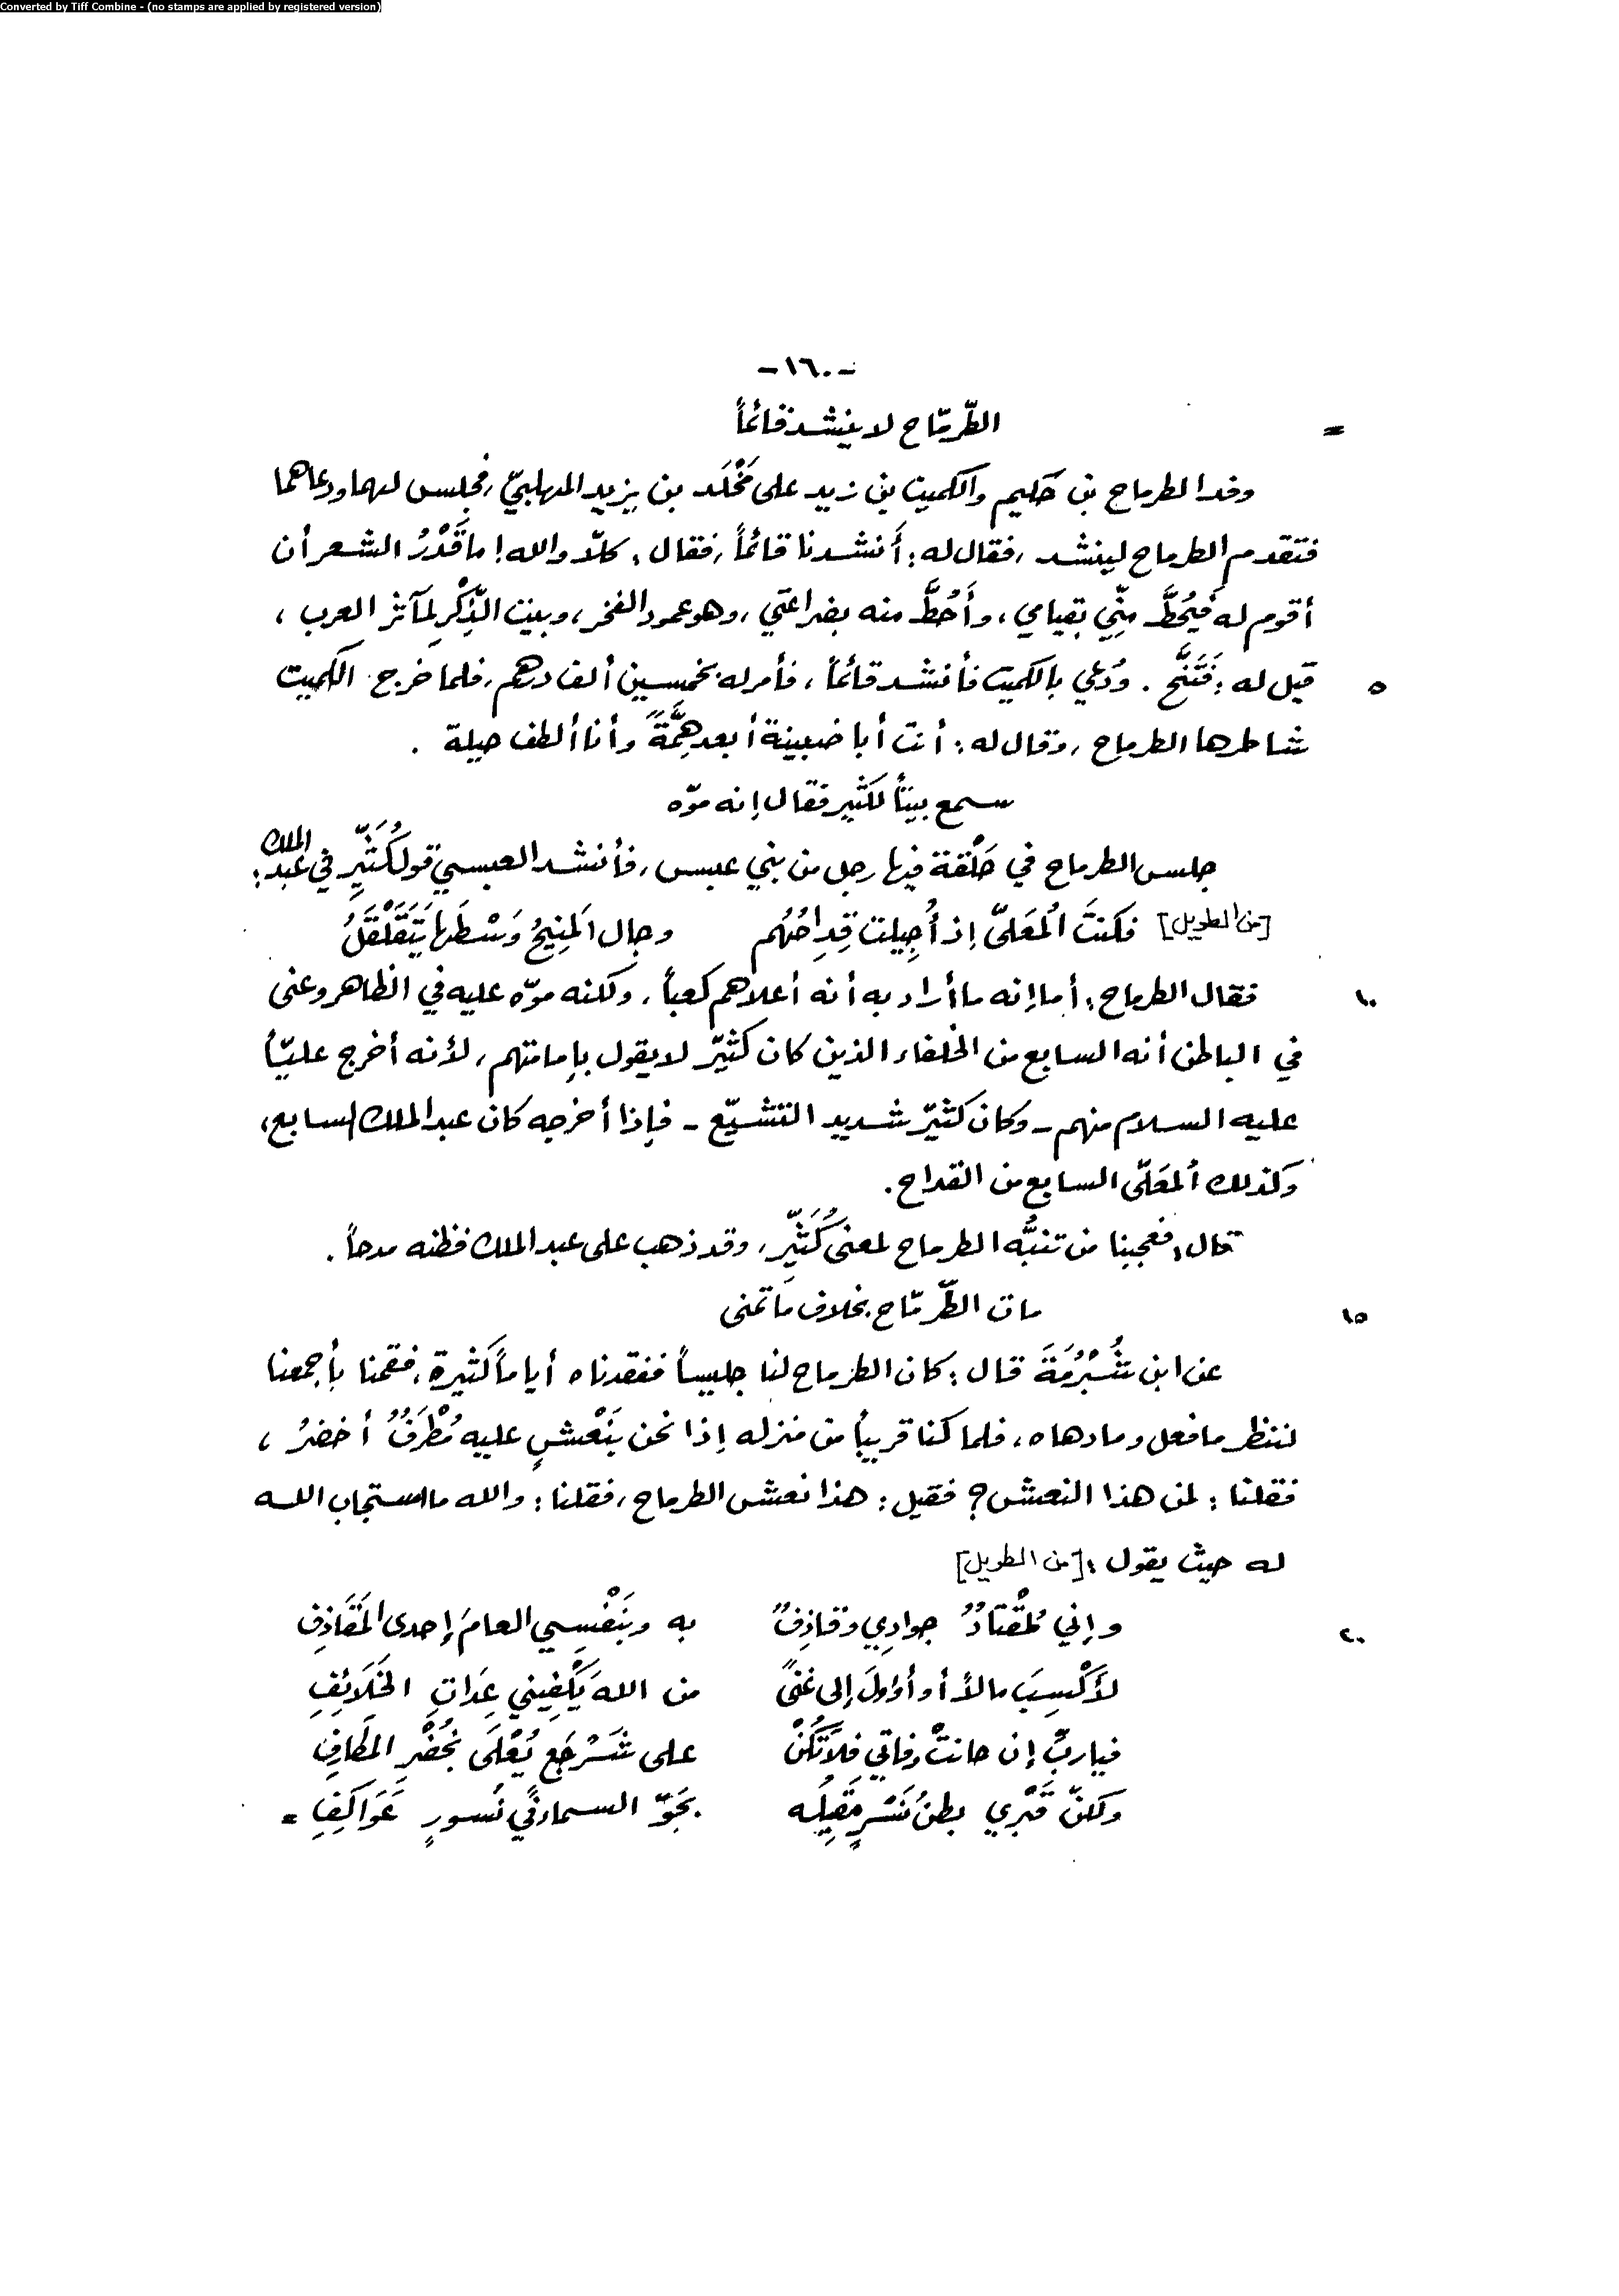 Converted by Tiff Combine - (no stamps are applied by registered version)
-١٦٠-
= الطّرمّاح لا ينشد قائماً
وفد الطرماح بن حَكيم والكميت بن زيد على مَخْلَد بن يزيد المهلبيّ، فجلس لهما ودعاهما
فتقدم الطرماح لينشد، فقال له: أَنشدنا قائماً، فقال: كلاّ والله! ما قَدْرُ الشعر أن
أقوم له فيُحطَّ مِنِّي بقيامي، وأَحُطَّ منه بضراعتي، وهو عمود الفخر، وبيت الذِّكْرِ لمآثر العرب،
٥ قيل له: فَتَنَحَّ. ودُعي بالكميت فأنشد قائماً، فأمر له بخمسين ألف درهم، فلما خرج الكميت
شاطرها الطرماح، وقال له: أنت أبا ضبينة أبعد هِمَّةً وأنا ألطف حيلة.
سمع بيتاً لكثير فقال إنه موّه
جلس الطرماح في حَلْقة فيها رجل من بني عبس، فأنشد العبسيّ قول كُثَيِّرٍ في عبد الملك:
[من الطويل] فكنتَ المُعَلىّ إذ أُجِيلت قِداحُهُم وجال المَنِيحُ وَسْطَها يَتَقَلْقَلُ
١٠ فقال الطرماح: أما إنه ما أراد به أنه أعلاهم كعباً، ولكنه موّه عليه في الظاهر وعنى
في الباطن أنه السابع من الخلفاء الذين كان كثيّر لا يقول بإمامتهم، لأنه أخرج عليّاً
عليه السلام منهم - وكان كثيّر شديد التشيّع - فإذا أخرجه كان عبد الملك السابع،
وكَذلك المُعَلّى السابع من القداح.
قال: فعجبنا من تنبُّه الطرماح لمعنى كُثَيِّر، وقد ذهب على عبد الملك فظنه مدحاً.
١٥ مات الطّرمّاح بخلاف ما تمنى
عن ابن شُبْرُمَةَ قال: كان الطرماح لنا جليساً ففقدناه أياماً كثيرة، فقمنا بأجمعنا
لننظر ما فعل وما دهاه، فلما كنا قريباً من منزله إذا نحن بنَعْشٍ عليه مُطْرَفٌ أخضرُ،
فقلنا: لمن هذا النعش؟ فقيل: هذا نعش الطرماح، فقلنا: والله ما استجاب الله
له حيث يقول: [من الطويل]
٢٠ وإني لمُقْتَادٌ جوادِي وقاذِفٌ به وبَنَفْسِي العامَ إحدى المَقَاذِفِ
لأَكْسِبَ مالاً أو أؤولَ إلى غنىً من الله يَكْفِيني عِدَاتِ الخَلَائِفِ
فياربِّ إن حانتْ وفاتي فلا تَكُنْ على شَرْجَعٍ يُعْلَى بخُضْرِ المَطَارِفِ
ولكنّ قَبْرِي بطنُ نَسْرٍ مَقِيلُه بجَوِّ السماء في نُسورٍ عَوَاكِفِ =